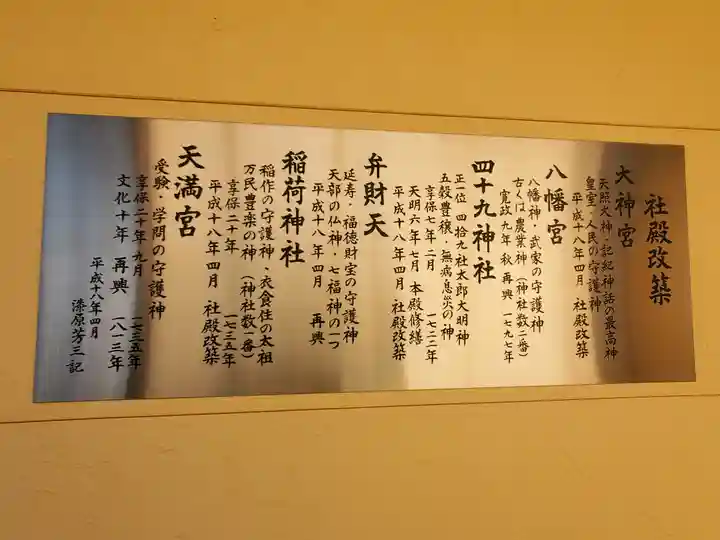 社殿改築
大神宮
天照大神・記紀神話の最高神
皇室・人民の守護神
平成十八年四月 社殿改築
八幡宮
八幡神・武家の守護神
古くは農業神（神社数二番）
寛政九年秋 再興 一七九七年
四十九神社
正一位 四拾九社太郎大明神
五穀豊穣・無病息災の神
享保七年二月 一七二二年
天明六年七月 本殿修繕
平成十八年四月 社殿改築
弁財天
延寿・福徳財宝の守護神
天部の仏神・七福神の一つ
平成十八年四月 再興
稲荷神社
稲作の守護神・衣食住の太祖
万民豊楽の神（神社数一番）
享保二十年 一七三五年
平成十八年四月 社殿改築
天満宮
受験・学問の守護神
享保二十年九月 一七三五年
文化十年 再興 一八一三年
平成十八年四月
漆原芳三記